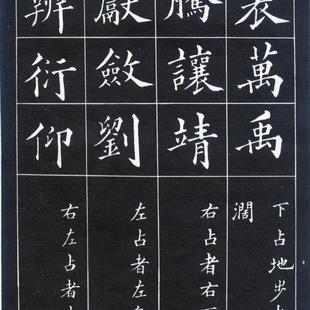 萬禹
下占地步
闊
騰讓靖
右占者右
獻斂劉
左占者左
衍仰
右左占者